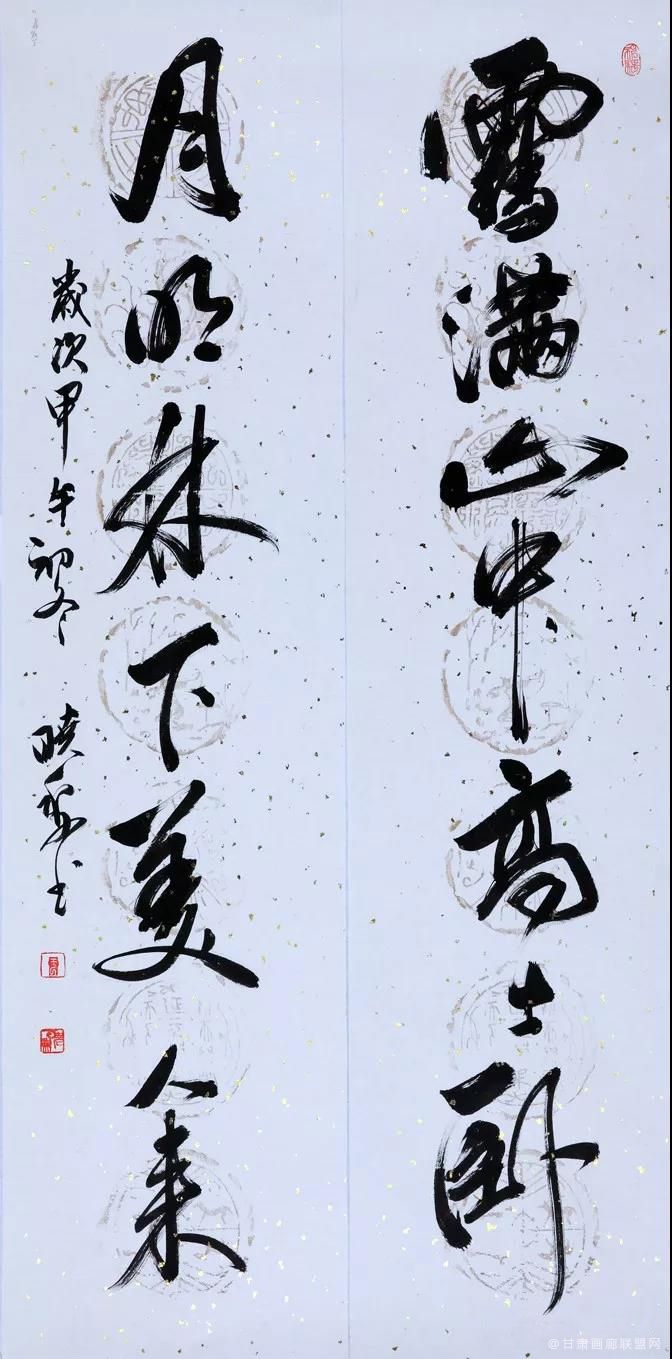 雪满山中高士卧
月明林下美人来
歲次甲午初冬 曉
书
@甘肃画廊联盟网